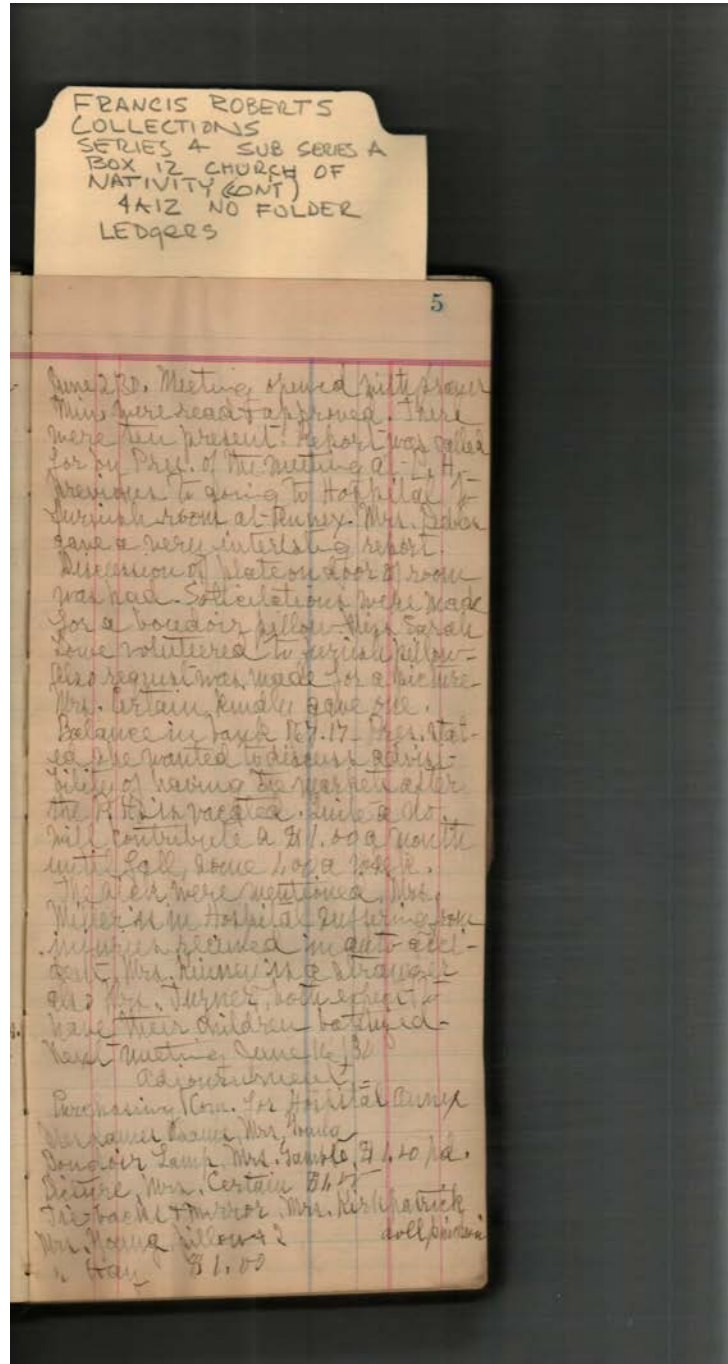 FRANCIS ROBERTS
COLLECTIONS
SERIES 4 SUB SERIES A
BOX 12 CHURCH OF
NATIVITY (CONT)
4A12 NO FOLDER
LEDgeRS
5
June 2, 30. Meeting opened with prayer
Min. were read & approved. There
were ten present. Report was called
for by Pres. of the meeting at
previous to going to Hospital to
furnish room at Annex. Mrs.
gave a very interesting report.
Discussion of plate on door of room
was had. Solicitations were made
for a boudoir pillow Miss Sarah
Lowe volunteered to furnish pillow-
Also request was made for a picture-
Mrs. Certain kindly gave one.
Balance in bank 167.17 - Pres. stat-
ed she wanted to discuss advisi-
bility of having the market after
the is vacated. Quite a no.
will contribute a $1.00 a month
until Fall, some
The sick were mentioned, Mrs.
is in Hospital suffering from
injuries received in auto acci-
dent, Mrs. Kinney is a stranger
also Mrs. Turner, both expect to
have their children
Next meeting June 16, 30
Adjournment -
Purchasing Com. for Hospital Annex
Mrs.
Boudoir Lamp, Mrs. Gamble, pd.
Picture, Mrs. Certain
Tie backs & mirror, Mrs. Kirkpatrick
Mrs. Young, Pillow & 2
" tray $1.00